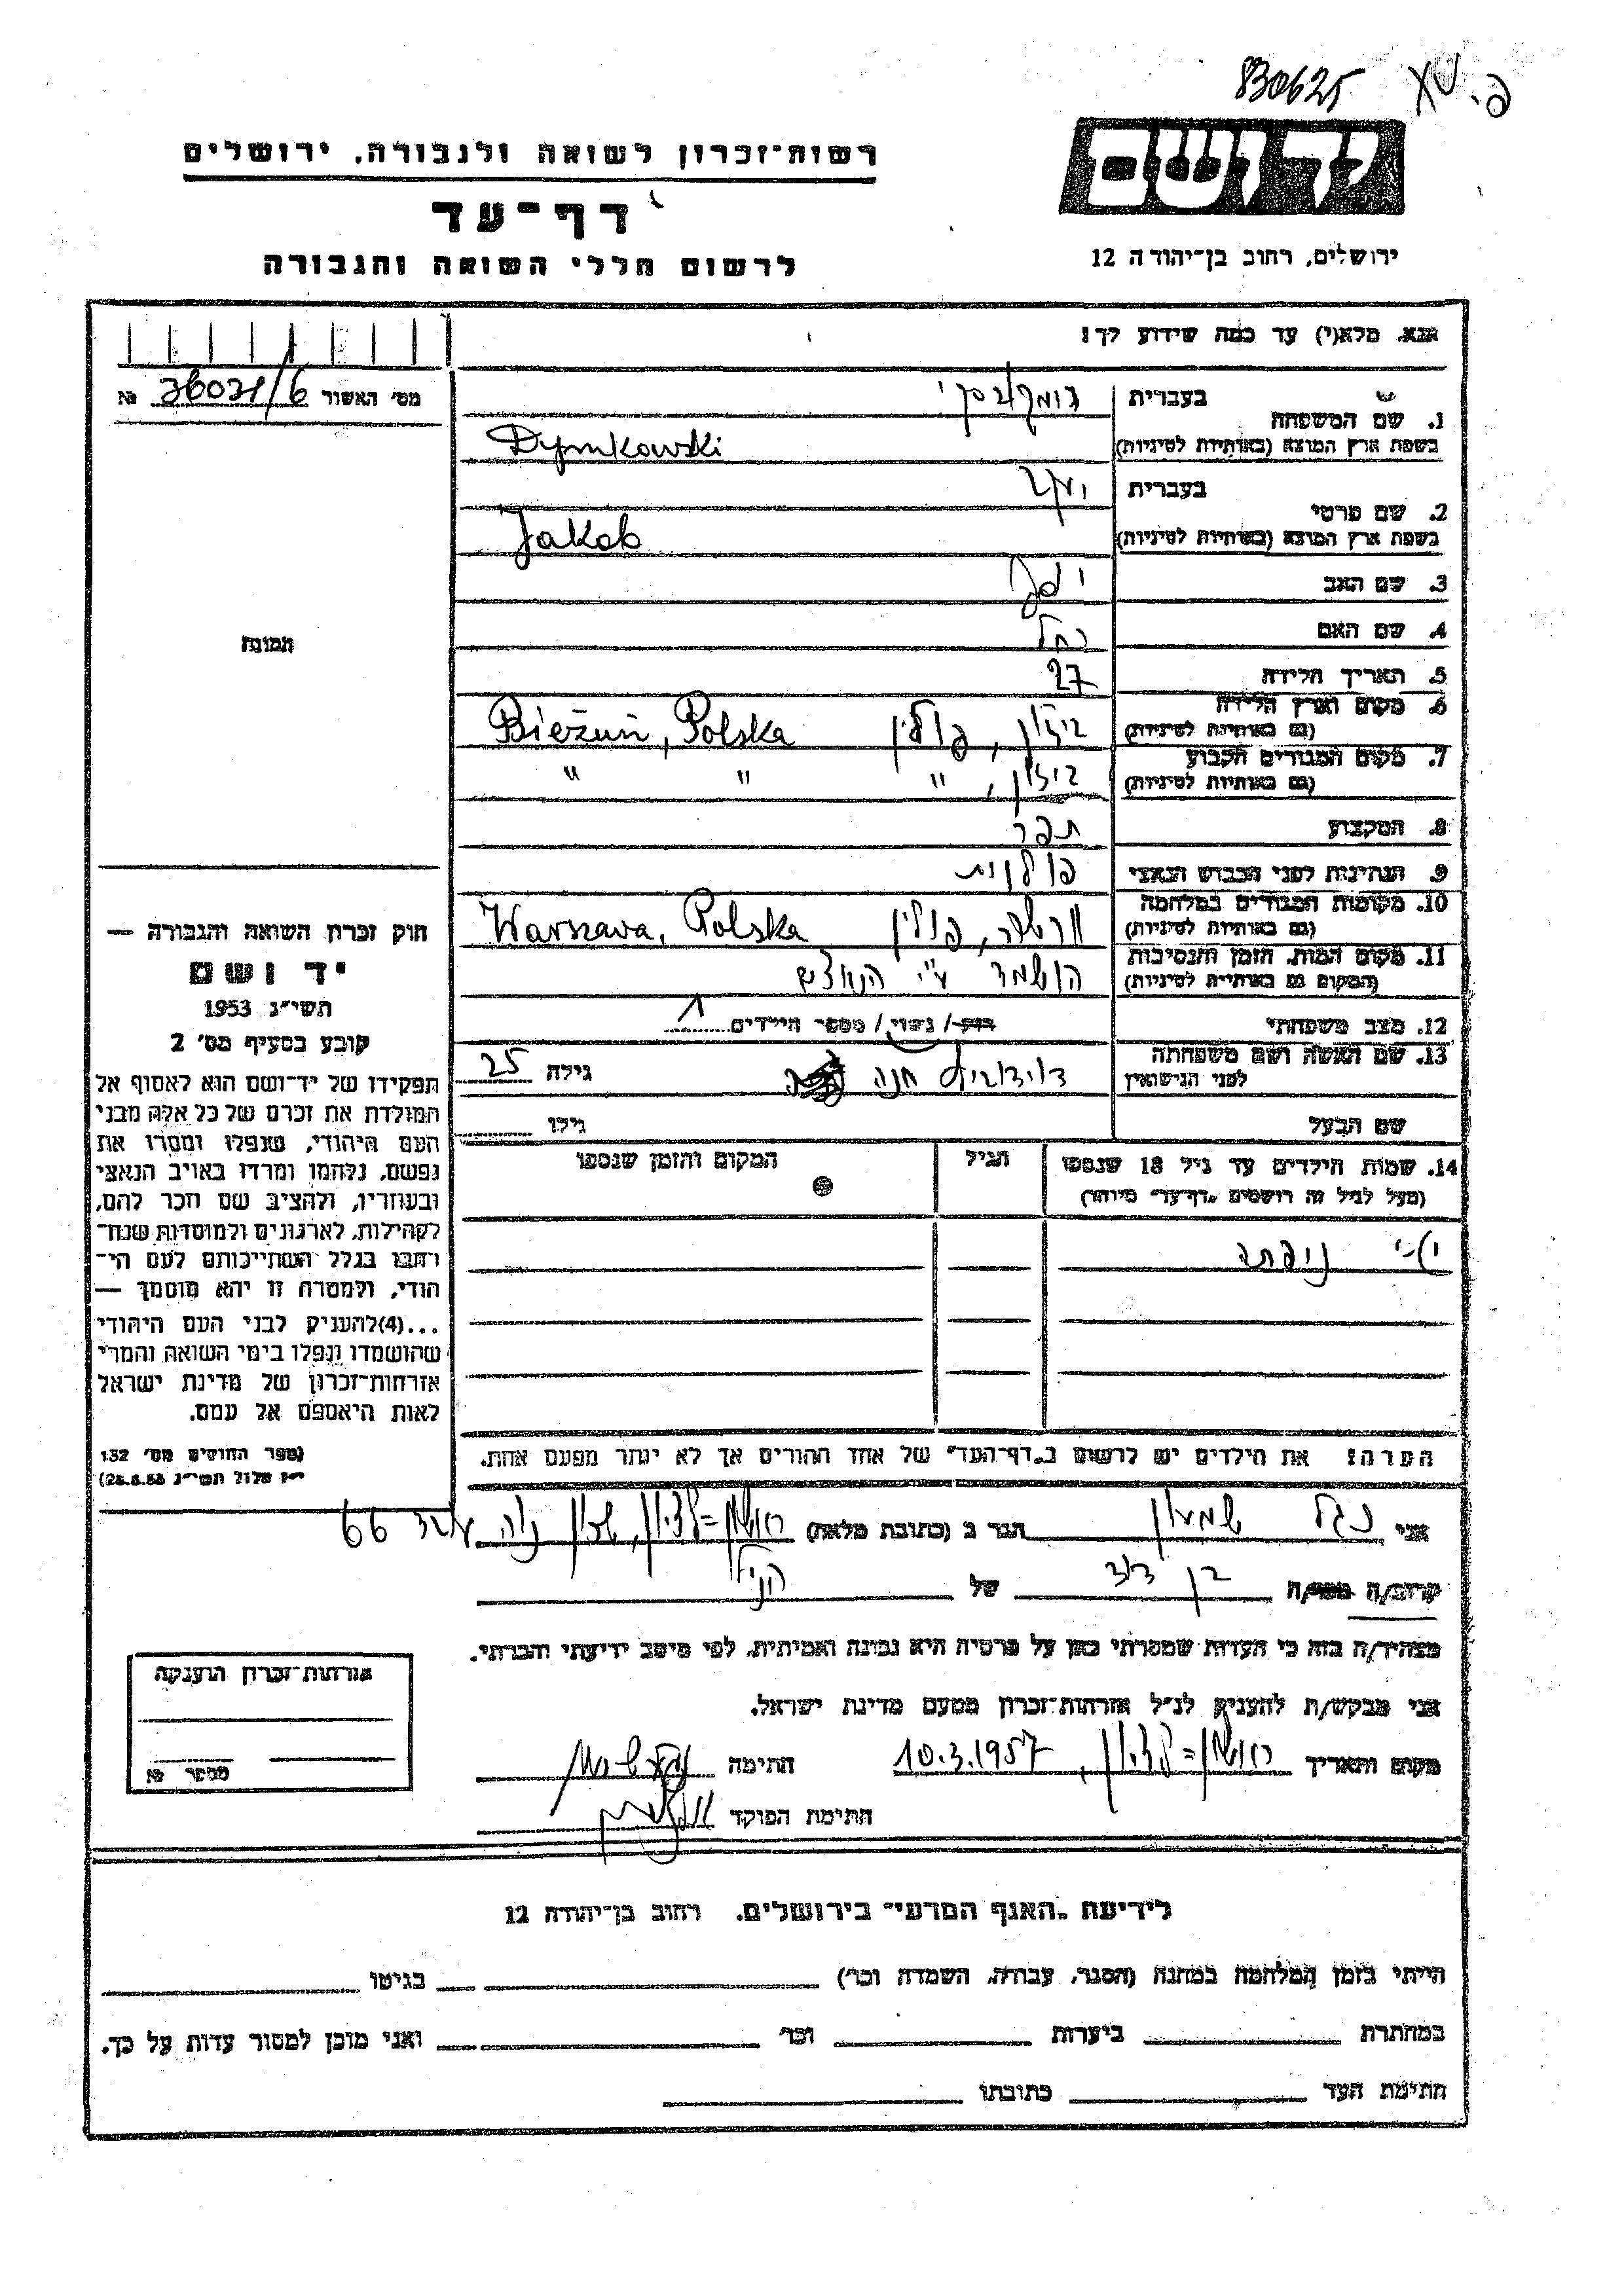 830625
רשות-זכרון לשואה ולגבורה. ירושלים
דף-עד
לרשום חללי השואה והגבורה
ירושלים, רחוב בן-יהודה 12
אנא. מלא(י) עד כמה שידוע לך!
מס' האשור 36031/6 №
1. שם המשפחה בעברית דומקובסקי
בשפת ארץ המוצא (באותיות לטיניות) Dymkowski
2. שם פרטי בעברית יעקב
בשפת ארץ המוצא (באותיות לטיניות) Jakob
3. שם האב
4. שם האם רחל
5. תאריך הלידה 27
6. מקום וארץ הלידה (גם באותיות לטיניות) ביזון, פולין Bieżuń, Polska
7. מקום המגורים הקבוע (גם באותיות לטיניות) ביזון, " " "
8. המקצוע תפר
9. הנתינות לפני הכבוש הנאצי פולנית
10. מקומות המגורים במלחמה (גם באותיות לטיניות) ורשה, פולין Warszawa, Polska
11. מקום המות. הזמן והנסיבות (המקום גם באותיות לטיניות) הושמד ע"י הנאצים
12. מצב משפחתי רוק/ נשוי/ מספר הילדים 1
13. שם האשה ושם משפחתה לפני הנישואין דוידוביץ חנה גילה 25
שם הבעל גילו
14. שמות הילדים עד גיל 18 שנספו (מעל לגיל זה רושמים "דף-עד" מיוחד) הגיל המקום והזמן שנספו
הערה! את הילדים יש לרשום ב"דף-העד" של אחד ההורים אך לא יותר מפעם אחת.
התמונה
חוק זכרון השואה והגבורה —
יד ושם
תשי"ג 1953
קובע בסעיף מס' 2
תפקידו של יד-ושם הוא לאסוף אל
המולדת את זכרם של כל אלה מבני
העם היהודי, שנפלו ומסרו את
נפשם, נלחמו ומרדו באויב הנאצי
ובעוזריו, ולהציב שם וזכר להם,
לקהילות, לארגונים ולמוסדות שנח-
רבו בגלל השתייכותם לעם הי-
הודי, ולמטרה זו יהא מוסמך —
...(4)להעניק לבני העם היהודי
שהושמדו ונפלו בימי השואה והמרי
אזרחות-זכרון של מדינת ישראל
לאות היאספם אל עמם.
(ספר החוקים מס' 132
י"ז אלול תשי"ג 28.8.53)
אני נגל שמעון הגר ב (כתובת מלאה) ראשון=לציון, שכון נוה 66
קרוב/ה משפ/ה בן דוד של הנ"ל
מצהיר/ה בזה כי העדות שמסרתי כאן על פרטיה היא נכונה ואמיתית. לפי מיטב ידיעתי והכרתי.
אני מבקש/ת להעניק לנ"ל אזרחות-זכרון מטעם מדינת ישראל.
מקום ותאריך ראשון=לציון, 10.3.1957 חתימה
חתימת הפוקד
אזרחות-זכרון הוענקה
מספר №
לידיעת "האגף המדעי" בירושלים. רחוב בן-יהודה 12
הייתי בזמן המלחמה במחנה (הסגר, עבודה, השמדה וכו') בגיטו
במחתרת ביערות וכו' ואני מוכן למסור עדות על כך.
חתימת העד כתובתו